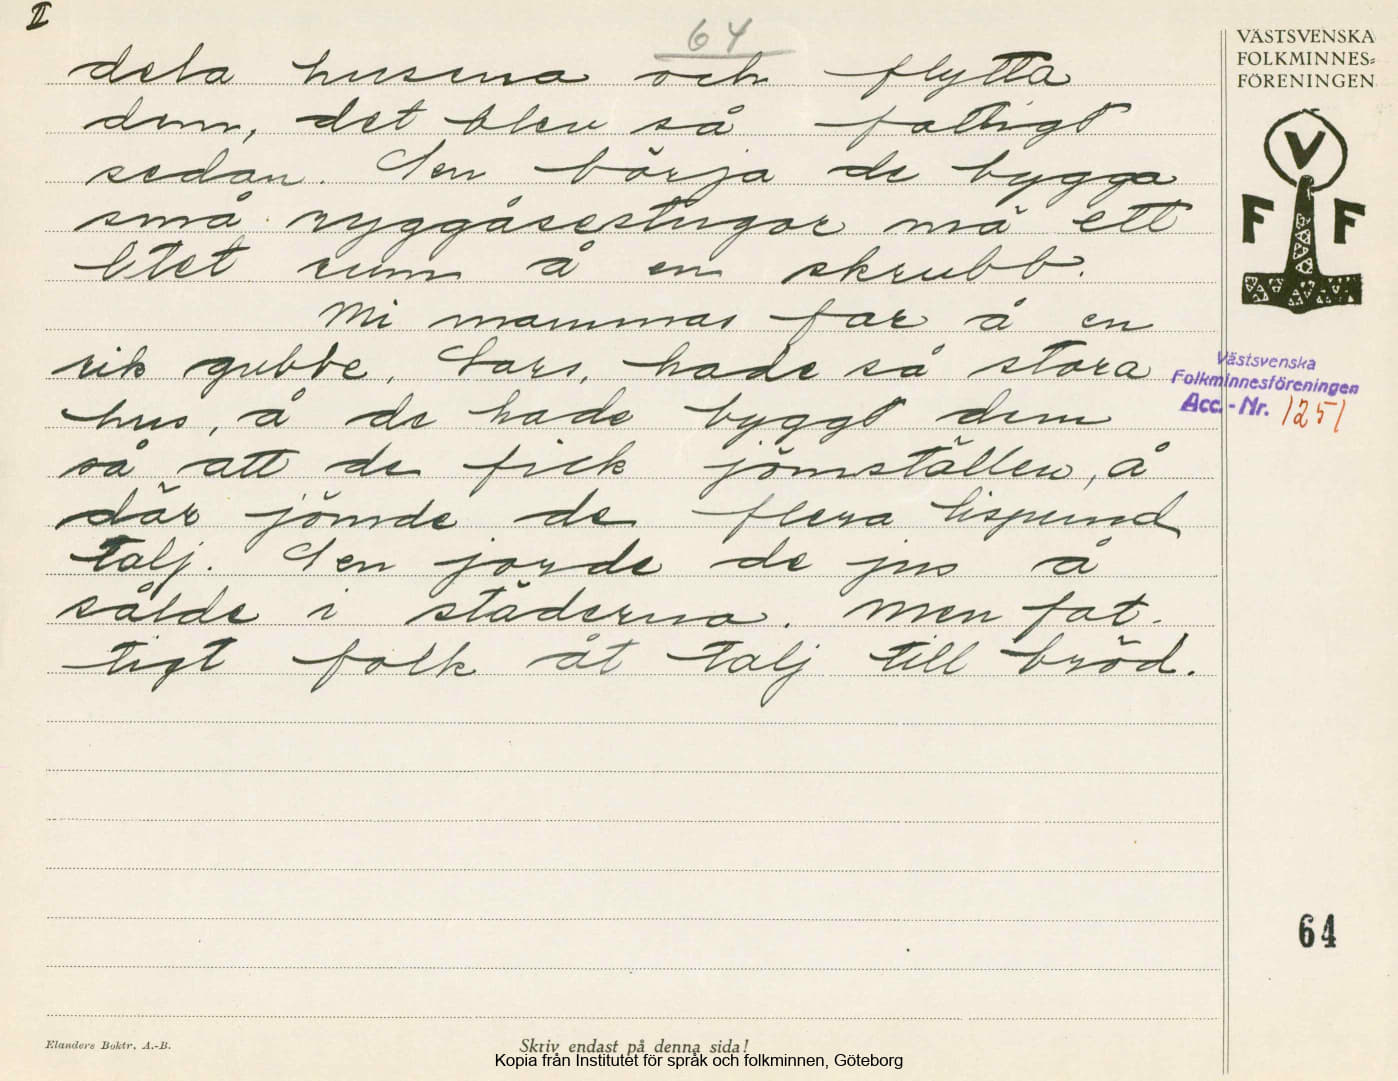 II
64
dela husena och flytta
dem, det blev så fattigt
sedan. Sen börja de bygga
små ryggåsestugor mä ett
litet rum å en skrubb.
Mi mammas far å en
rik gubbe, Lars, hade så stora
hus, å de hade byggt dem
så att de fick jömställen, å
där jömde de flera lispund
talj. Sen jorde de jus å
sålde i städerna. Men fat-
tigt folk åt talj till bröd.
VÄSTSVENSKA
FOLKMINNES-
FÖRENINGEN
V
F F
Västsvenska
Folkminnesföreningen
Acc.-Nr. 1251
64
Elanders Boktr. A.-B.
Skriv endast på denna sida!
Kopia från Institutet för språk och folkminnen, Göteborg